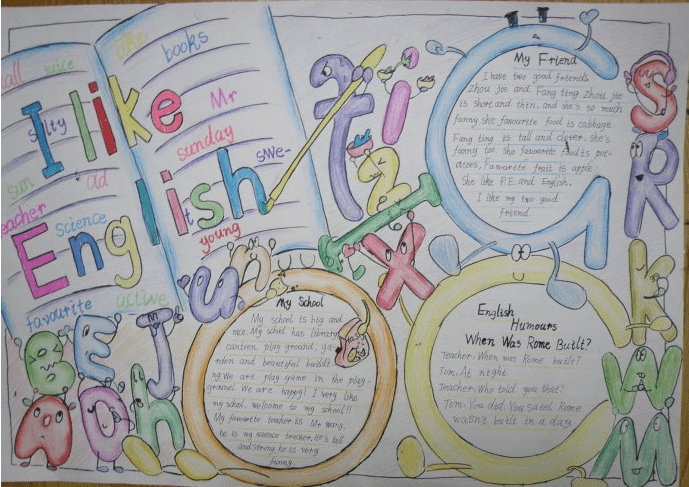 I like
English
call juice
like books
salty
Mr
sunday
sun
ad
swe-
teacher
science
it
young
favourite
active
My Friend
I have two good friends
Zhou jie and Fang ting Zhou jie
is short and thin. and she's so much
funny she favourite food is cabbage.
Fang ting is tall and clever. she's
funny too. She favourite food is pot-
atoes, Favourite fruit is apple.
She like P.E. and English.
I like my two good
Friend.
My School
My school is big and
nice. My school has library
canteen play ground, ga-
rden and beautiful buildi
ng We are play game in the play-
ground. We are happy! I very like
my school. welcome to my school!!
My favourite teacher is Mr Wang,
he is my science teacher. He's tall
and strong, he is very
funny.
English
Humours
When Was Rome Built?
Teacher: When was Rome built?
Tom: At night.
Teacher: Who told you that?
Tom: You did. You saied Rome
wasn't built in a day.
t
i
z
I
x
S
R
K
W
M
u
n
B
E
J
A
O
h